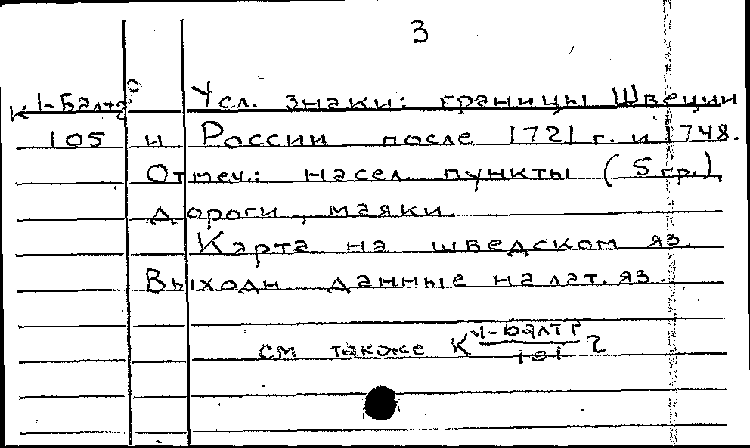 3
К 1-Балт Усл. знаки: границы Швеции
105 и России после 1721 г. и 1748.
Отмеч.: насел. пункты (5 гр.),
дороги, маяки.
Карта на шведском яз.
Выходн данные на лат. яз
см также К 1-Балт
101 2